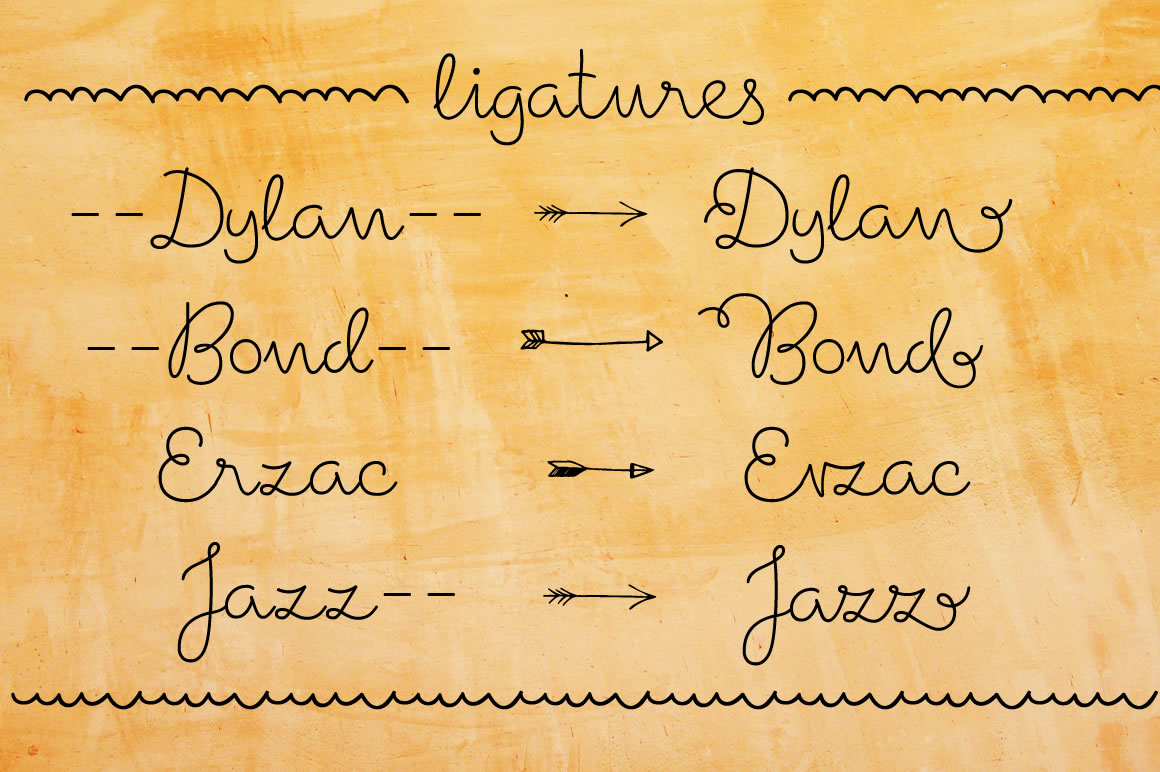 ligatures
--Dylan-- Dylan
--Bond-- Bond
Erzac Erzac
Jazz-- Jazz